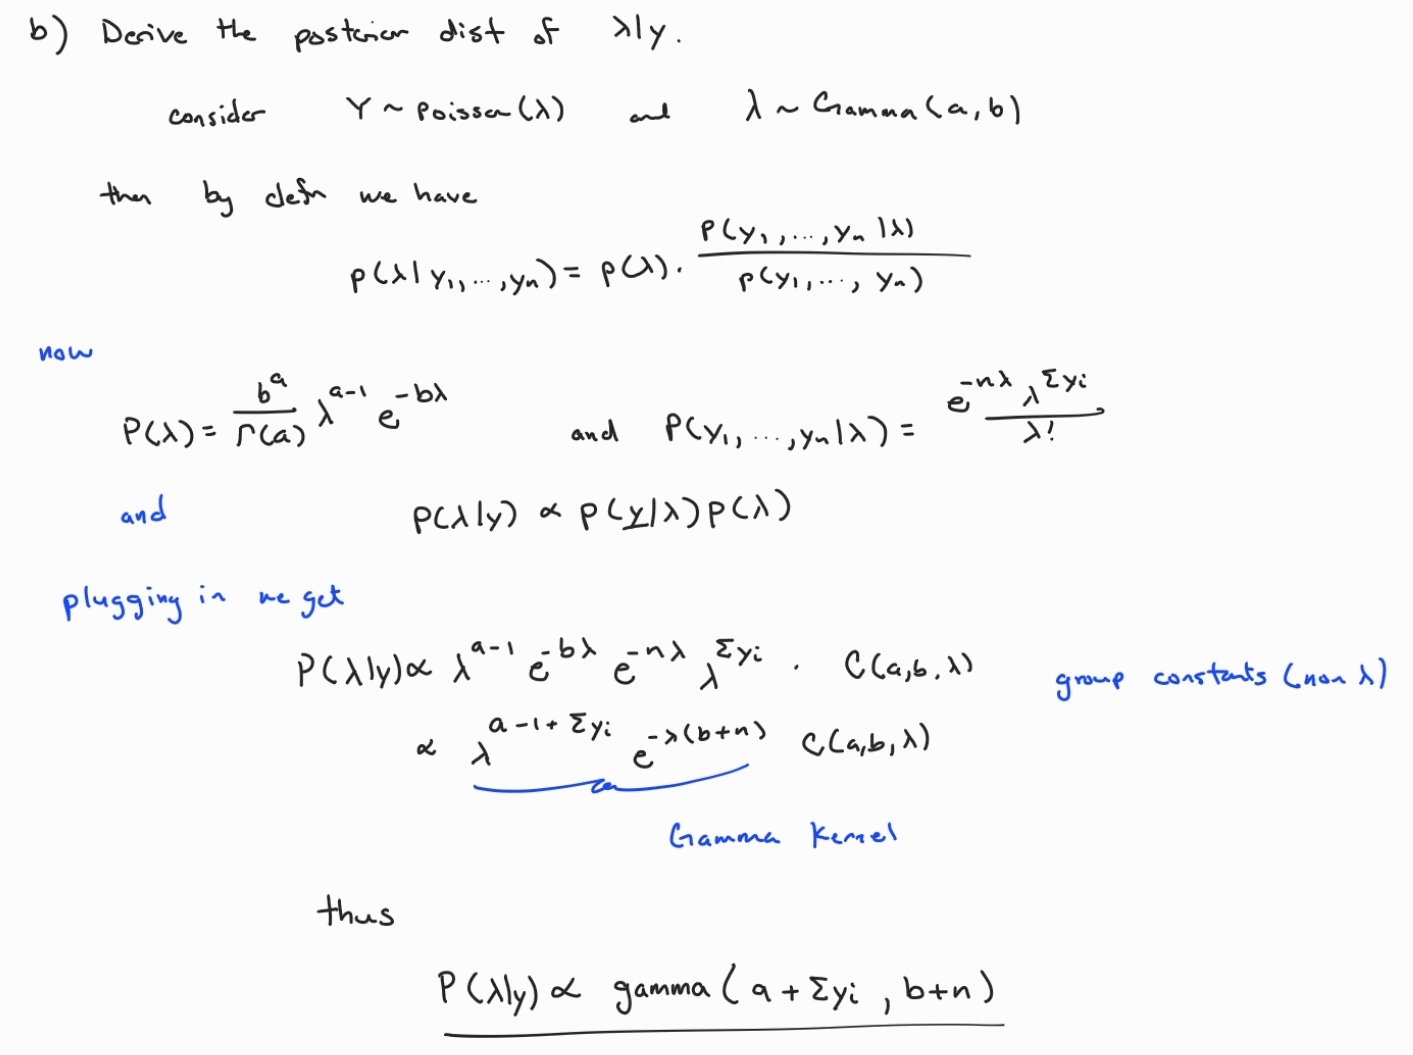 b) Derive the posterior dist of λ|y.
consider Y ~ Poisson(λ) and λ ~ Gamma(a, b)
then by defn we have
p(λ|y₁, ..., yₙ) = p(λ) · P(y₁, ..., yₙ|λ) / p(y₁, ..., yₙ)
now
P(λ) = b^a / Γ(a) λ^(a-1) e^(-bλ) and P(y₁, ..., yₙ|λ) = e^(-nλ) λ^(Σyi) / λ!
and p(λ|y) ∝ p(y|λ) p(λ)
plugging in we get
P(λ|y) ∝ λ^(a-1) e^(-bλ) e^(-nλ) λ^(Σyi) · C(a,b,λ) group constants (non λ)
∝ λ^(a-1+Σyi) e^(-λ(b+n)) C(a,b,λ)
Gamma Kernel
thus
P(λ|y) ∝ gamma(a + Σyi, b+n)